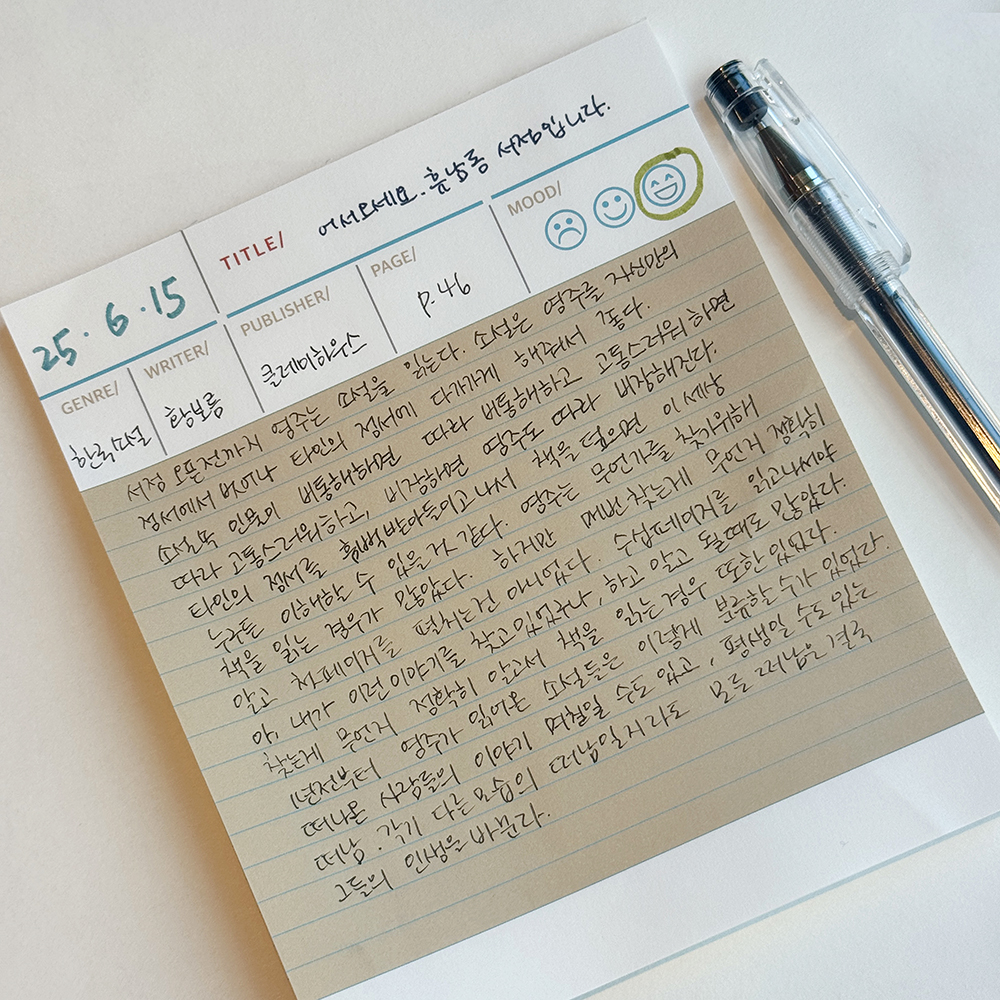 25. 6. 15
TITLE/ 어서오세요. 휴남동 서점입니다.
GENRE/ 한국소설
WRITER/ 황보름
PUBLISHER/ 클레이하우스
PAGE/ p.46
MOOD/
서점 오픈전까지 영주는 소설을 읽는다. 소설은 영주를 자신만의
정서에서 벗어나 타인의 정서에 다가가게 해줘서 좋다.
소설속 인물이 비통해하면 따라 비통해하고 고통스러워 하면
따라 고통스러워하고, 비장하면 영주도 따라 비장해진다.
타인의 정서를 흠뻑 받아들이고 나서 책을 덮으면 이 세상
누구든 이해할 수 있을 거 같다. 영주는 무언가를 찾기위해
책을 읽는 경우가 많았다. 하지만 매번 찾는게 무언지 정확히
알고 첫페이지를 펼치는건 아니었다. 수십페이지를 읽고나서야
아, 내가 이런 이야기를 찾고 있었구나, 하고 알고 될때도 많았다.
찾는게 무언지 정확히 알고서 책을 읽는 경우 또한 있었다.
1년전부터 영주가 읽어온 소설들은 이렇게 분류할 수가 있었다.
떠나온 사람들의 이야기 며칠일 수도 있고, 평생일 수도 있는
떠남. 각기 다른 모습의 떠남일지라도 모든 떠남은 결국
그들의 인생을 바꾼다.